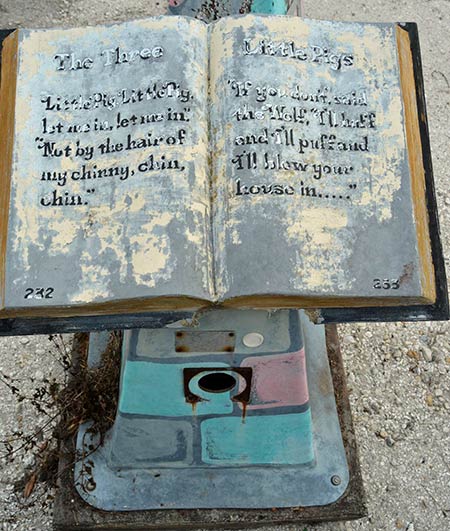 The Three
"Little Pig, Little Pig,
let me in, let me in."
"Not by the hair of
my chinny, chin,
chin."
232
Little Pigs
"If you don't, said
the Wolf, "I'll huff
and I'll puff and
I'll blow your
house in....."
233